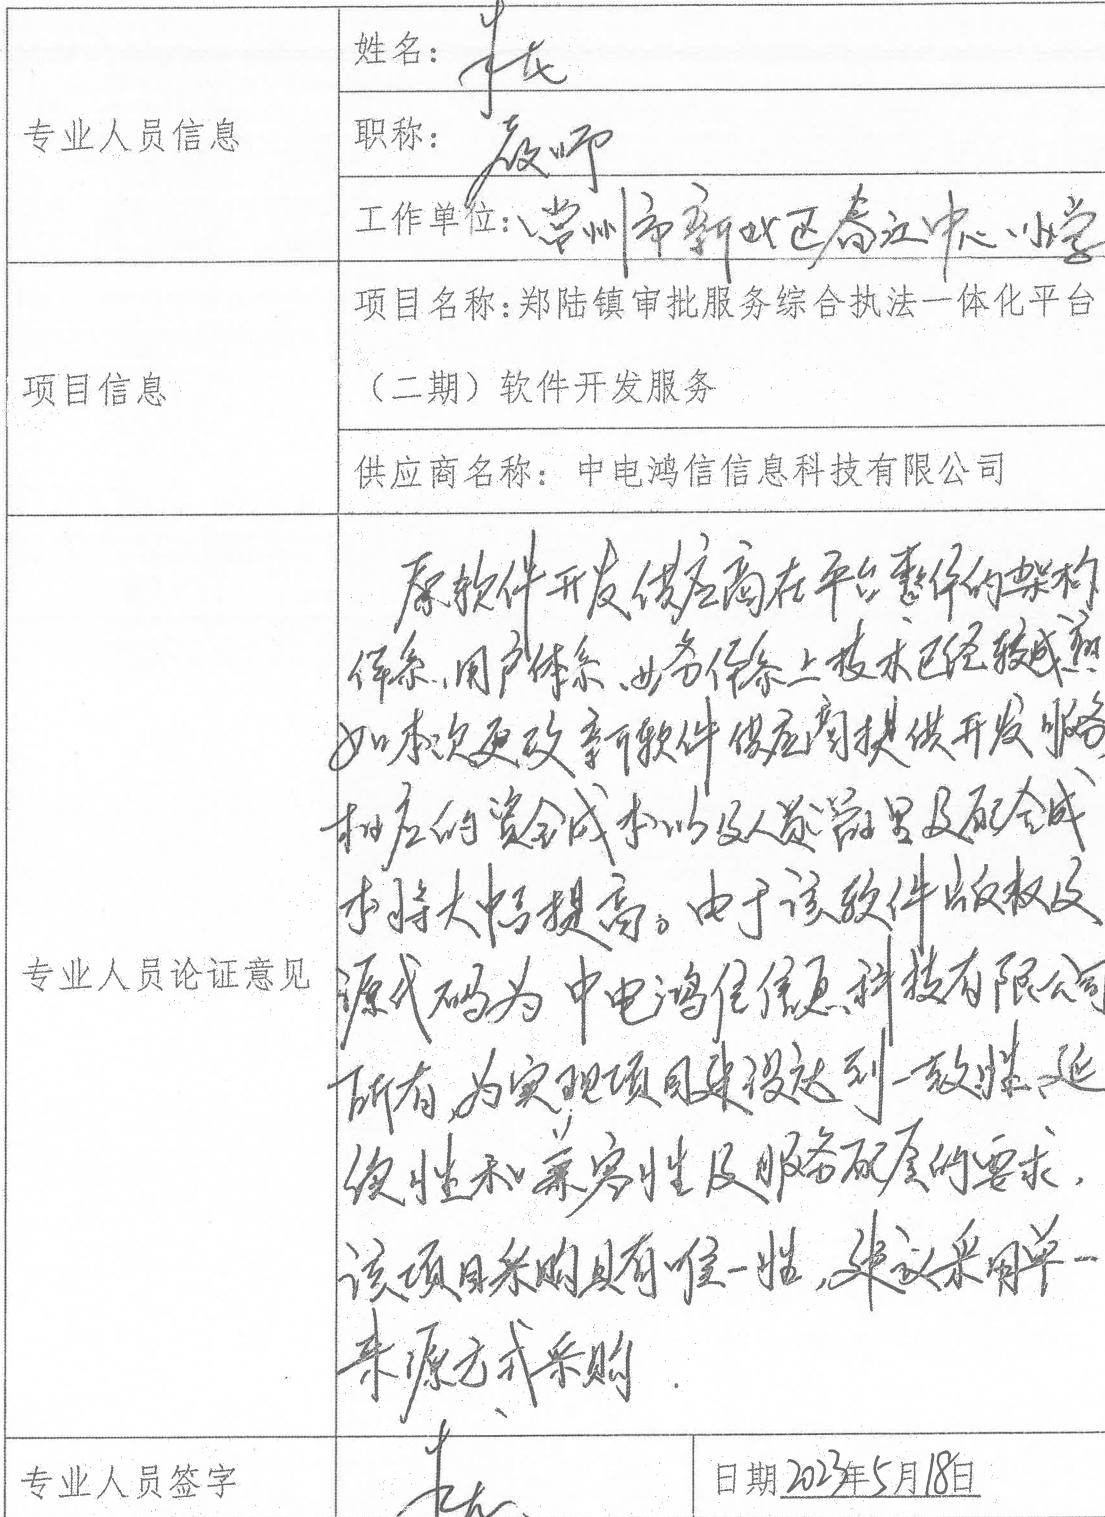 专业人员信息
姓名:
职称: 教师
工作单位: 常州市新北区春江中心小学
项目信息
项目名称:郑陆镇审批服务综合执法一体化平台
(二期)软件开发服务
供应商名称: 中电鸿信信息科技有限公司
专业人员论证意见
原软件开发供应商在平台整体的架构
体系、用户体系、业务体系上技术已经较成熟
如本次更改新软件供应商提供开发服务
相应的资金成本以及人员及配合成
本将大幅提高。由于该软件版权及
源代码为中电鸿信信息科技有限公司
所有,为实现项目建设达到一致性、延
续性和兼容性及服务配套的要求,
该项目采购具有唯一性,建议采用单一
来源方式采购.
专业人员签字
日期 2023年5月18日